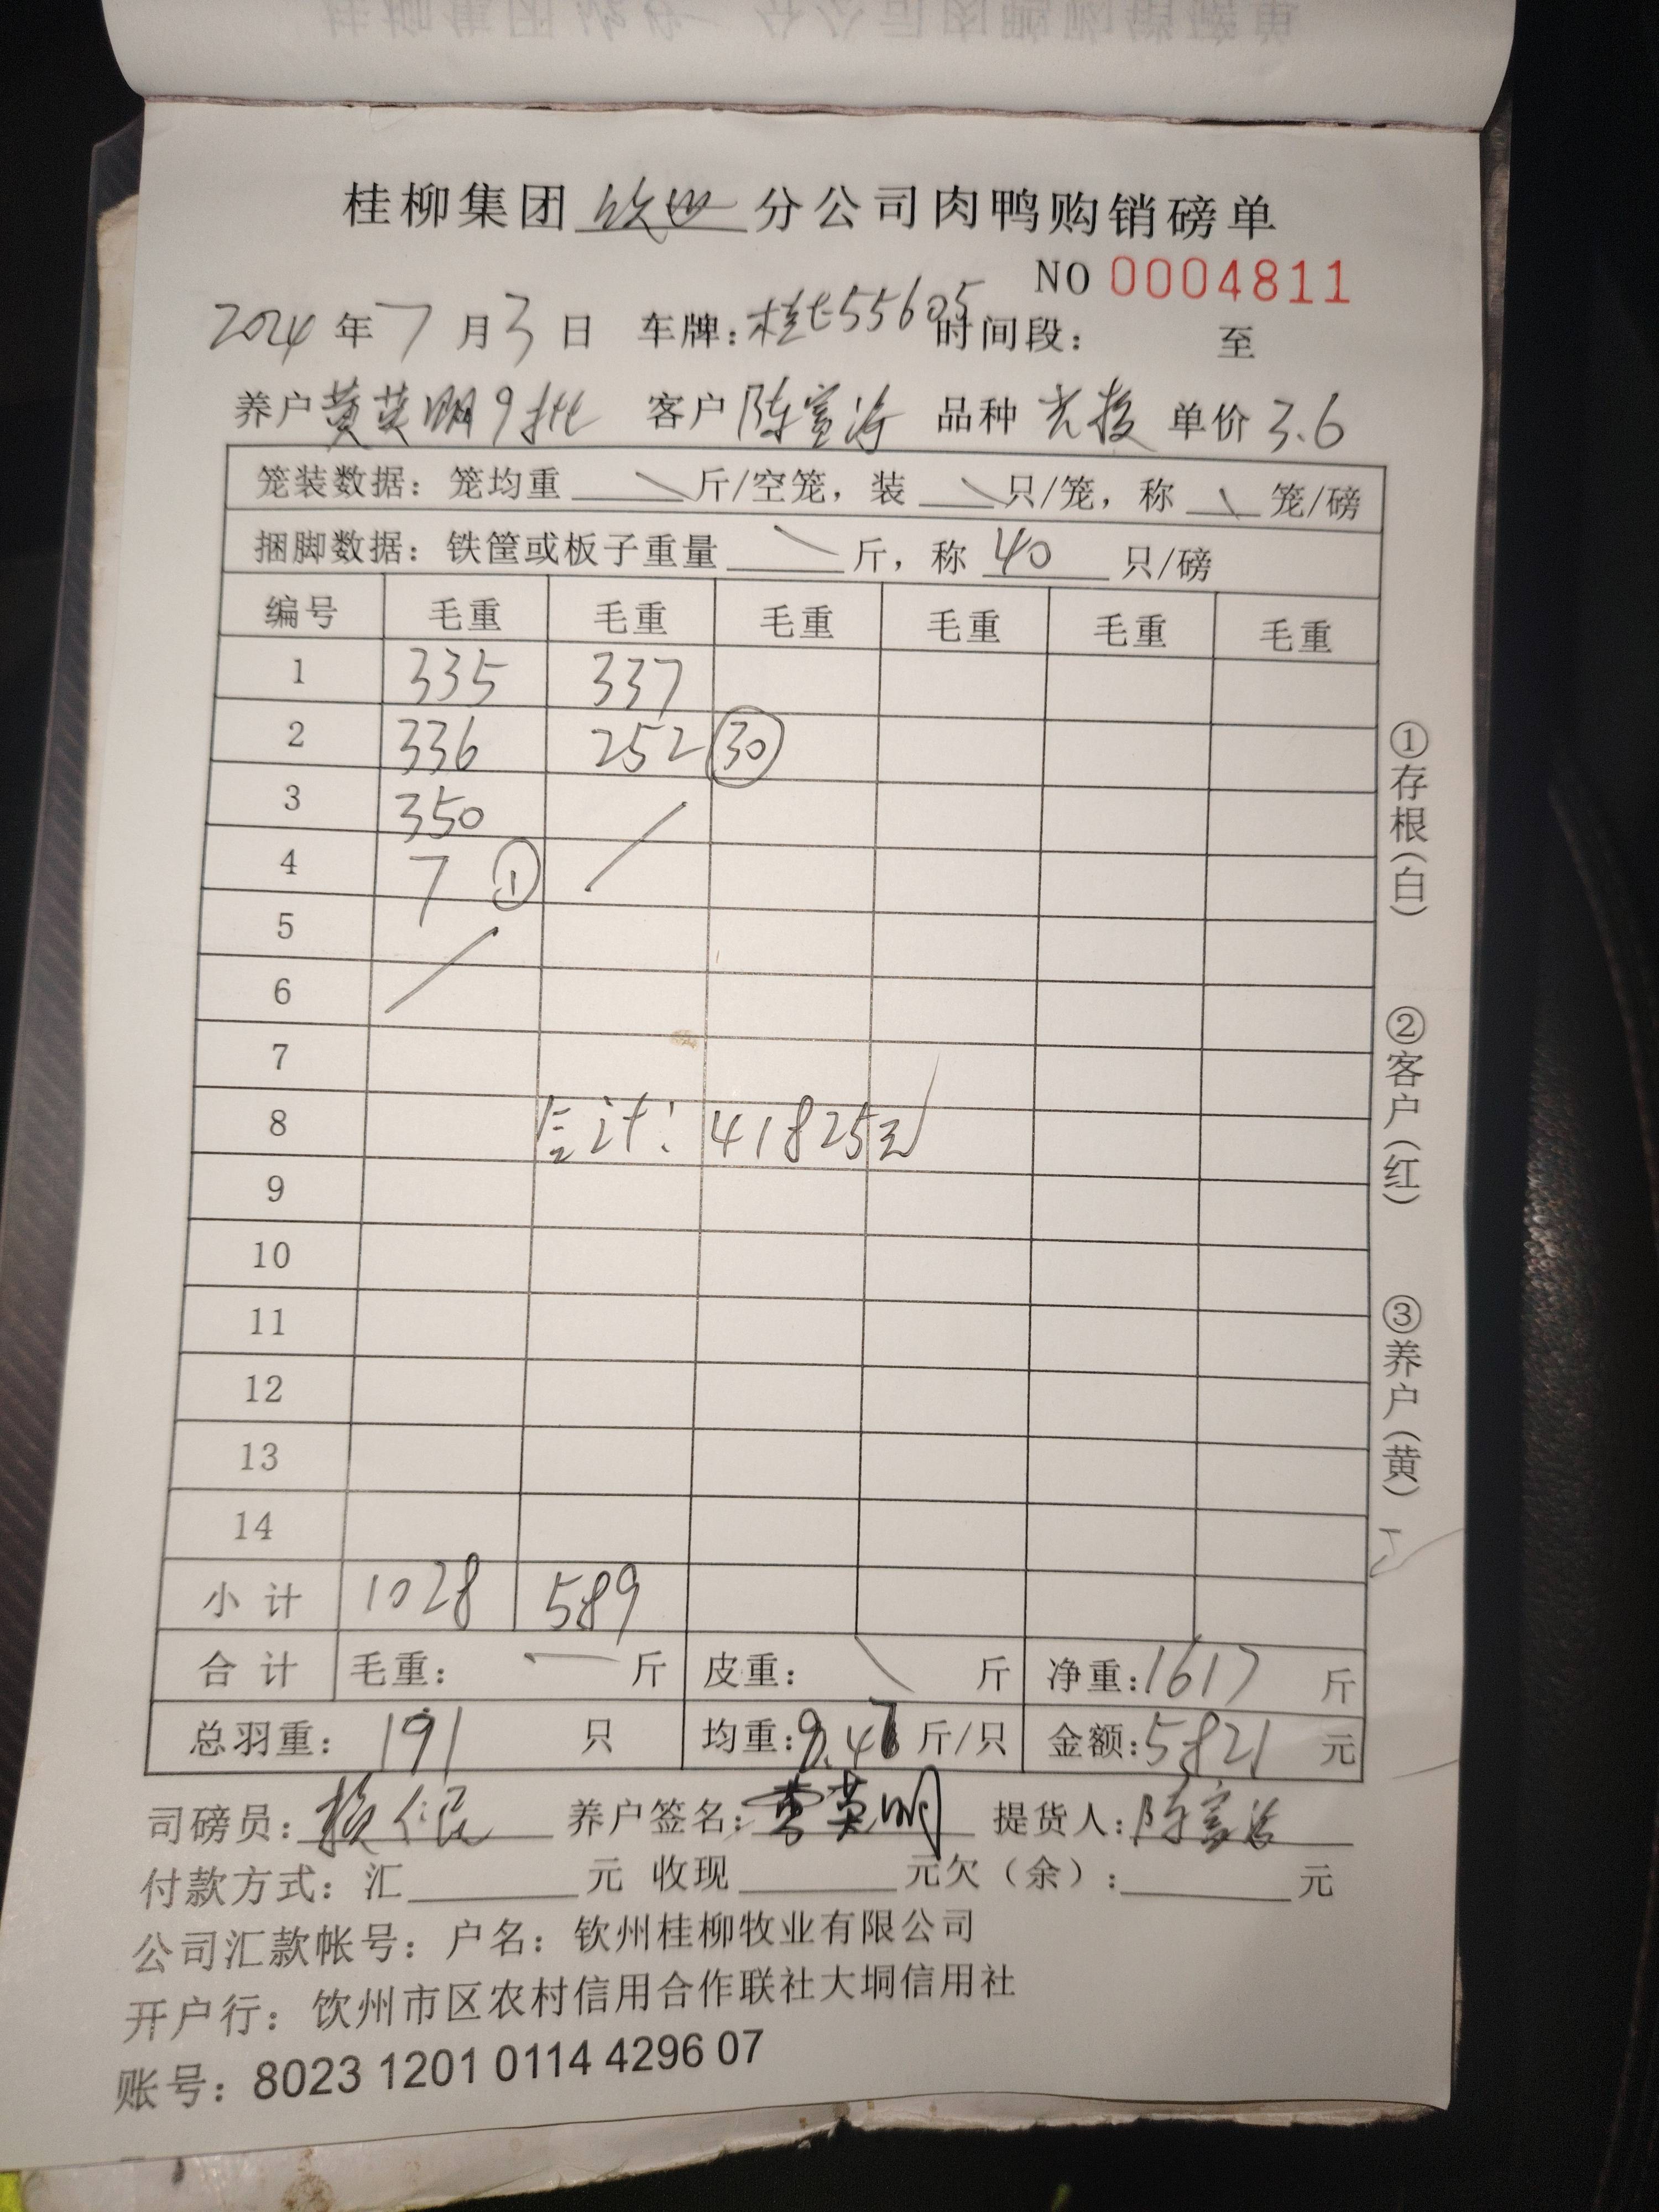 桂柳集团 钦州 分公司肉鸭购销磅单
NO 0004811
2024 年 7 月 3 日 车牌: 桂E55605 时间段: 至
养户 黄英明9批 客户 陈富济 品种 单价 3.6
笼装数据: 笼均重 \ 斤/空笼, 装 \ 只/笼, 称 \ 笼/磅
捆脚数据: 铁筐或板子重量 \ 斤, 称 40 只/磅
编号 毛重 毛重 毛重 毛重 毛重 毛重
1 335 337
2 336 252 ㉚
3 350
4 7 ①
5
6
7
8 合计: 41825元
9
10
11
12
13
14
小计 1028 589
合计 毛重: 斤 皮重: \ 斤 净重: 1617 斤
总羽重: 191 只 均重: 8.47 斤/只 金额: 5821 元
司磅员: 养户签名: 黄英明 提货人:
付款方式: 汇 元 收现 元欠(余): 元
公司汇款帐号: 户名: 钦州桂柳牧业有限公司
开户行: 钦州市区农村信用合作联社大垌信用社
账号: 8023 1201 0114 4296 07
①存根(白)
②客户(红)
③养户(黄)